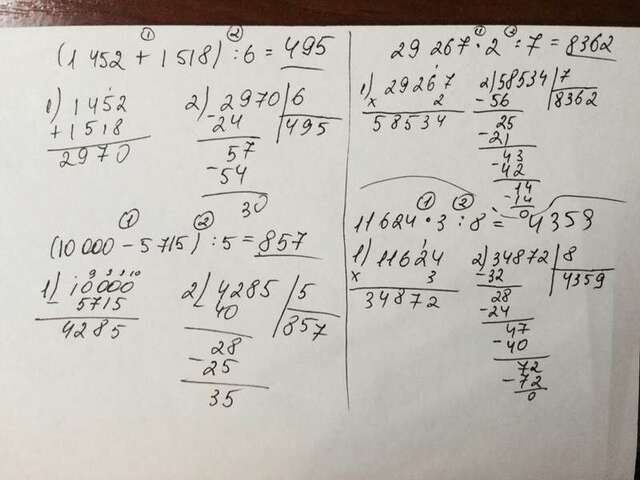 ① ②
(1 452 + 1 518) : 6 = 495
1) 1452
+1518
2970
2) 2970 6
-24 495
57
-54
30
① ②
(10 000 - 5 715) : 5 = 857
9 9 9 10
1) 10000
- 5715
4285
2) 4285 5
40 857
28
-25
35
① ②
29 267 · 2 : 7 = 8362
1) 29267
x 2
58534
2) 58534 7
-56 8362
25
-21
43
-42
14
-14
0
① ②
11 624 · 3 : 8 = 4359
1) 11624
x 3
34872
2) 34872 8
-32 4359
28
-24
47
-40
72
-72
0